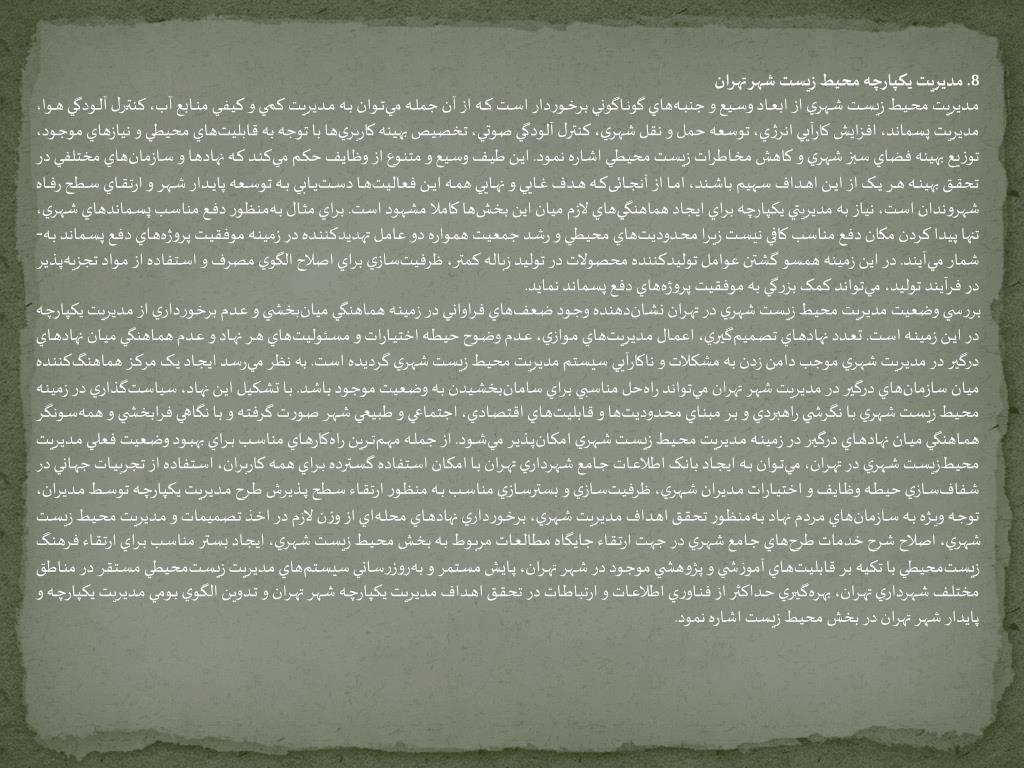 8. مديريت يكپارچه محيط زيست شهر تهران
مديريت محيط زيست شهري از ابعاد وسيع و جنبه‌هاي گوناگوني برخوردار است كه از آن جمله مي‌توان به مديريت كمي و كيفي منابع آب، كنترل آلودگي هوا،
مديريت پسماند، افزايش كارآيي انرژي، توسعه حمل و نقل شهري، كنترل آلودگي صوتي، تخصيص بهينه كاربري‌ها با توجه به قابليت‌هاي محيطي و نيازهاي موجود،
توزيع بهينه فضاي سبز شهري و كاهش مخاطرات زيست محيطي اشاره نمود. اين طيف وسيع و متنوع از وظايف حكم مي‌كند كه نهادها و سازمان‌هاي مختلفي در
تحقق بهينه هر يک از اين اهداف سهيم باشند، اما از آنجائي‌كه هدف غايي و نهايي همه اين فعاليت‌ها دست‌يابي به توسعه پايدار شهر و ارتقاي سطح رفاه
شهروندان است، نياز به مديريتي يكپارچه براي ايجاد هماهنگي‌هاي لازم ميان اين بخش‌ها كاملا مشهود است. براي مثال به‌منظور دفع مناسب پسماندهاي شهري،
تنها پيدا كردن مكان دفع مناسب كافي نيست زيرا محدوديت‌هاي محيطي و رشد جمعيت همواره دو عامل تهديدكننده در زمينه موفقيت پروژه‌هاي دفع پسماند به-
شمار مي‌آيند. در اين زمينه همسو گشتن عوامل توليدكننده محصولات در توليد زباله كمتر، ظرفيت‌سازي براي اصلاح الگوي مصرف و استفاده از مواد تجزيه‌پذير
در فرآيند توليد، مي‌تواند كمک بزرگي به موفقيت پروژه‌هاي دفع پسماند نمايد.
بررسي وضعيت مديريت محيط زيست شهري در تهران نشان‌دهنده وجود ضعف‌هاي فراواني در زمينه هماهنگي ميان‌بخشي و عدم برخورداري از مديريت يكپارچه
در اين زمينه است. تعدد نهادهاي تصميم‌گيري، اعمال مديريت‌هاي موازي، عدم وضوح حيطه اختيارات و مسئوليت‌هاي هر نهاد و عدم هماهنگي ميان نهادهاي
درگير در مديريت شهري موجب دامن زدن به مشكلات و ناكارآيي سيستم مديريت محيط زيست شهري گرديده است. به نظر مي‌رسد ايجاد يک مركز هماهنگ‌كننده
ميان سازمان‌هاي درگير در مديريت شهر تهران مي‌تواند راه‌حل مناسبي براي سامان‌بخشيدن به وضعيت موجود باشد. با تشكيل اين نهاد، سياست‌گذاري در زمينه
محيط زيست شهري با نگرشي راهبردي و بر مبناي محدوديت‌ها و قابليت‌هاي اقتصادي، اجتماعي و طبيعي شهر صورت گرفته و با نگاهي فرابخشي و همه‌سونگر
هماهنگي ميان نهادهاي درگير در زمينه مديريت محيط زيست شهري امكان‌پذير مي‌شود. از جمله مهم‌ترين راه‌كارهاي مناسب براي بهبود وضعيت فعلي مديريت
محيط‌زيست شهري در تهران، مي‌توان به ايجاد بانک اطلاعات جامع شهرداري تهران با امكان استفاده گسترده براي همه كاربران، استفاده از تجربيات جهاني در
شفاف‌سازي حيطه وظايف و اختيارات مديران شهري، ظرفيت‌سازي و بسترسازي مناسب به منظور ارتقاء سطح پذيرش طرح مديريت يكپارچه توسط مديران،
توجه ويژه به سازمان‌هاي مردم نهاد به‌منظور تحقق اهداف مديريت شهري، برخورداري نهادهاي محله‌اي از وزن لازم در اخذ تصميمات و مديريت محيط زيست
شهري، اصلاح شرح خدمات طرح‌هاي جامع شهري در جهت ارتقاء جايگاه مطالعات مربوط به بخش محيط زيست شهري، ايجاد بستر مناسب براي ارتقاء فرهنگ
زيست‌محيطي با تكيه بر قابليت‌هاي آموزشي و پژوهشي موجود در شهر تهران، پايش مستمر و به‌روزرساني سيستم‌هاي مديريت زيست‌محيطي مستقر در مناطق
مختلف شهرداري تهران، بهره‌گيري حداكثر از فناوري اطلاعات و ارتباطات در تحقق اهداف مديريت يكپارچه شهر تهران و تدوين الگوي بومي مديريت يكپارچه و
پايدار شهر تهران در بخش محيط زيست اشاره نمود.